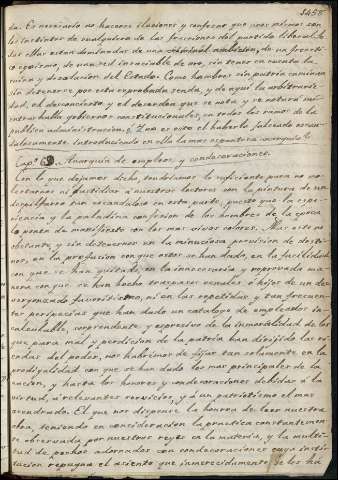 da. Es necesario no hacerse ilusiones y confesar que unas mismas son
los instintos de cualquiera de las fracciones del partido liberal. To-
das ellas están dominadas de una criminal ambición, de un frenéti-
co egoismo, de una sed insaciable de oro, sin tener en cuenta la
ruina y disolucion del Estado. Como hombres sin patria caminan
sin detenerse por esta reprobada senda, y de aqui la arbitrarie-
dad, el desconcierto y el desorden que se nota y se notará mi-
entras halla gobiernos constitucionales, en todos los ramos de la
publica administracion, y con es esto el haberla falseado escan-
dalosamente introduciendo en ella la mas espantosa anarquia.
Cap.º Anarquia de empleos y condecoraciones.
Con lo que dejamos dicho, tendríamos lo suficiente para no mo-
lestarnos ni fastidiar a nuestros lectores con la pintura de un
despilfarro tan escandaloso en esta parte, puesto que la espe-
riencia y la paladina confesion de los hombres de la época
lo ponen de manifiesto con los mas vivos colores. Mas esto no
obstante, y sin detenernos en la minuciosa precision de desti-
nos, en la profusion con que estos se han dado, en la facilidad
con que se han quitado, en la innecesaria y reprobada ma-
nera con que se han hecho traspasos venales ó hijos de un des-
vergonzado favoritismo, ni en las repetidas y tan frecuen-
tes peripecias que han dado un catalogo de empleados in-
calculable, sorprendente y espresivo de la inmoralidad de los
que para mal y perdicion de la patria han dirijido las ri-
endas del poder, nos habremos de fijar tan solamente en la
prodigalidad con que se han dado los mas principales de la
nacion, y hasta los honores y condecoraciones debidas á la
virtud, á relevantes servicios, y á un patriotismo el mas
acendrado. El que nos dispense la honra de leer nuestra
obra, teniendo en consideracion la practica constantemen-
te observada por nuestros reyes en la materia, y la multi-
tud de pechos adornados con condecoraciones cuya insti-
tucion repugna el asiento que inmerecidamente se les ha